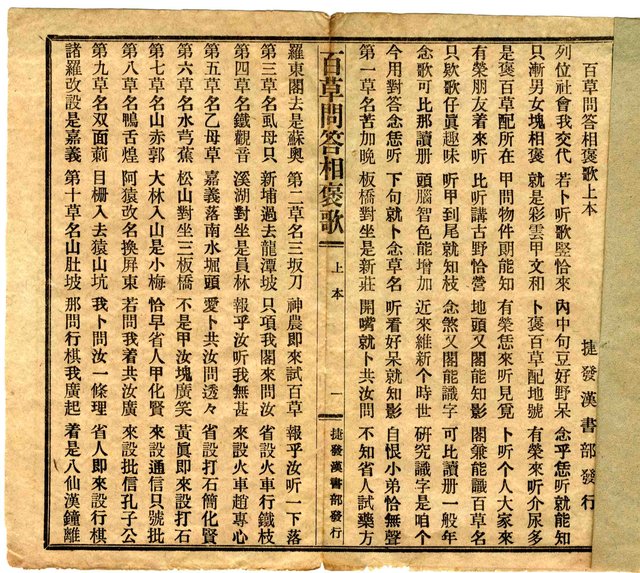 百草問答相褒歌上本 捷發漢書部發行
列位社會我交代 若卜听歌竪恰來 內中句豆好野呆 念乎恁听就能知
只漸男女塊相褒 就是彩雲甲文和 卜褒百草配地號 有榮來听介尿多
是褒百草配所在 甲問物件朗能知 有榮恁來听見覓 卜听个人大家來
有榮朋友着來听 比听講古野恰營 地頭又閣能知影 閣兼能識百草名
只欵歌仔眞趣味 听甲到尾就知枝 念煞又閣能識字 可比讀册一般年
念歌可比那讀册 頭腦智色能增加 近來維新个時世 研究識字是咱个
今用對答念恁听 下句就卜念草名 听看好呆就知影 自恨小弟恰無聲
第一草名苦加晚 板橋對坐是新莊 開嘴就卜共汝問 不知省人試藥方
百草問答相褒歌 上本 一 捷發漢書部發行
羅東閣去是蘇奧 第二草名三坂刀 神農即來試百草 報乎汝听一下落
第三草名虱母只 新埔過去龍潭坡 只項我閣來問汝 省設火車行鐵枝
第四草名鐵觀音 溪湖對坐是員林 報乎汝听我無甚 來設火車趙專心
第五草名乙母草 嘉義落南水堀頭 愛卜共汝問透々 省設打石簡化賢
第六草名水芎蕉 松山對坐三板橋 不是甲汝塊廣笑 黃眞即來設打石
第七草名山赤郭 大林入山是小梅 恰早省人甲化賢 來設通信只號批
第八草名鴨舌煌 阿猿改名換屏東 若問我着共汝廣 來設批信孔子公
第九草名双面莿 目柵入去猿山坑 我卜問汝一條理 省人即來設行棋
諸羅改設是嘉義 第十草名山肚坡 那問行棋我廣起 着是八仙漢鐘離